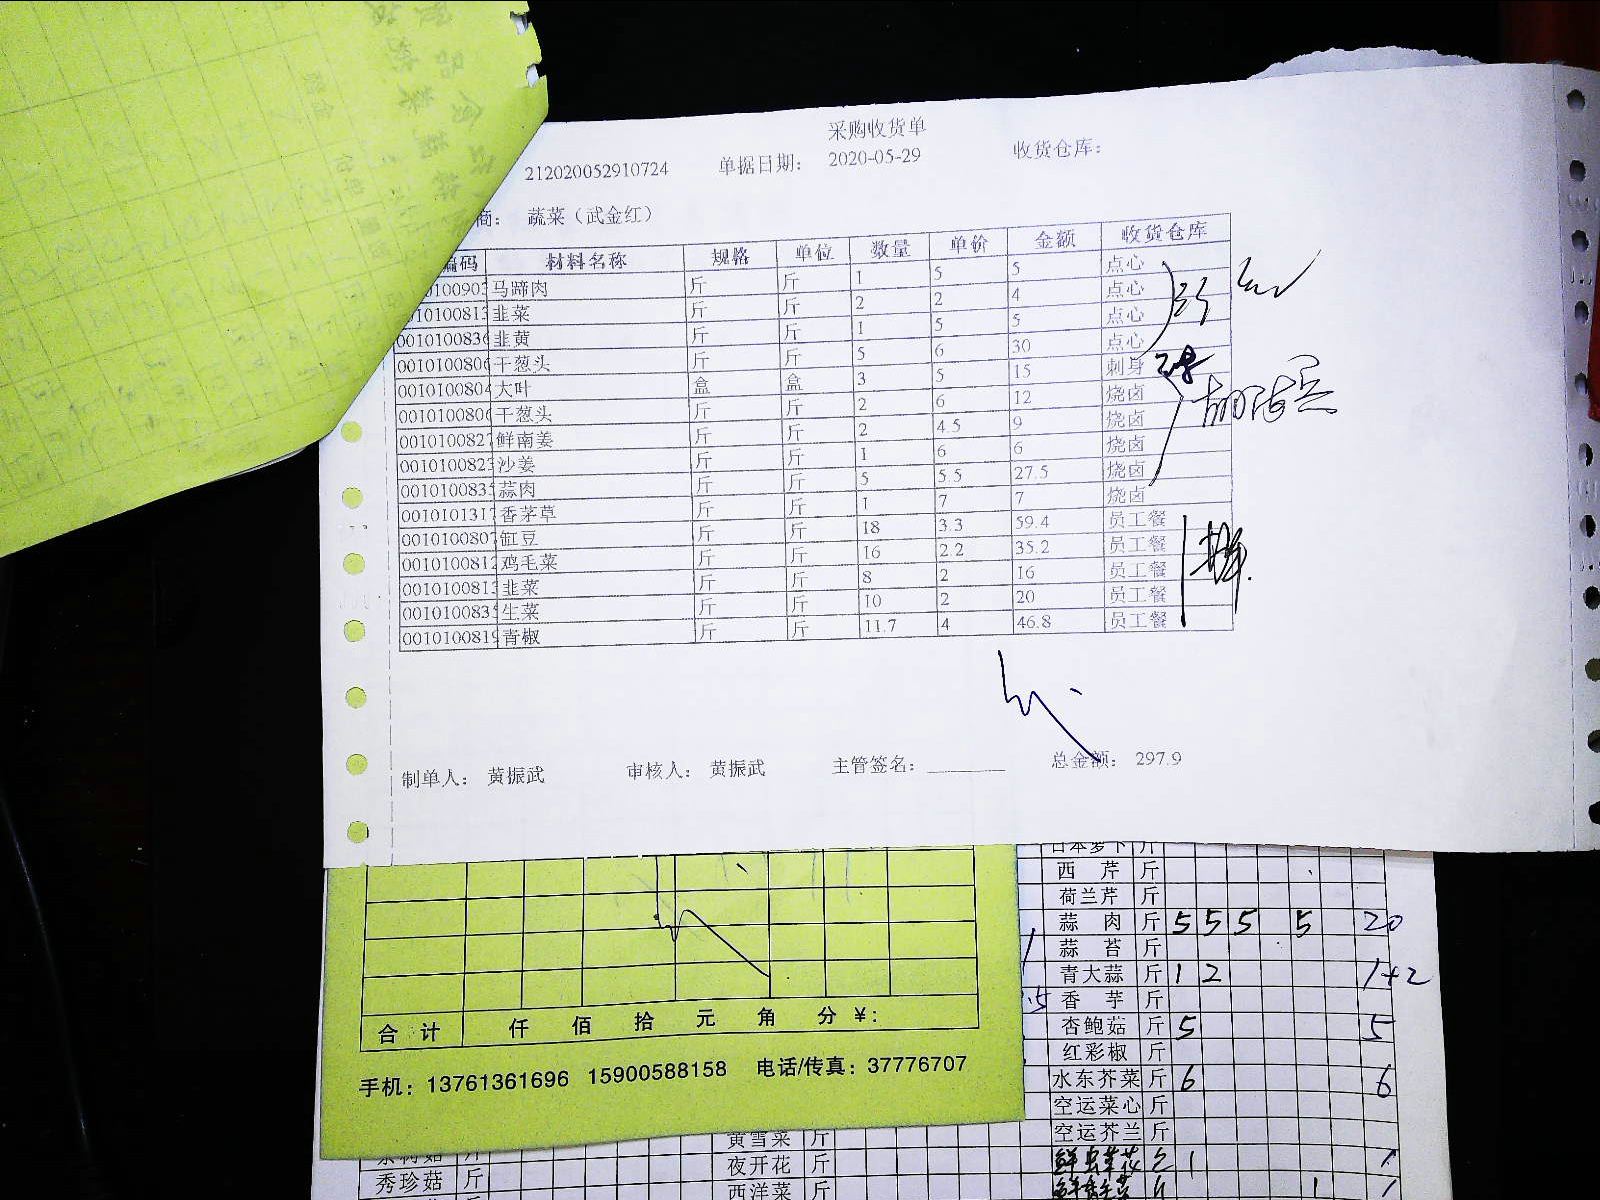 采购收货单
212020052910724 单据日期: 2020-05-29 收货仓库:
商: 蔬菜（武金红）
编码 材料名称 规格 单位 数量 单价 金额 收货仓库
马蹄肉 斤 斤 1 5 5 点心
0010100813 韭菜 斤 斤 2 2 4 点心
0010100836 韭黄 斤 斤 1 5 5 点心
0010100806 干葱头 斤 斤 5 6 30 点心
0010100804 大叶 盒 盒 3 5 15 刺身
0010100806 干葱头 斤 斤 2 6 12 烧卤
0010100827 鲜南姜 斤 斤 2 4.5 9 烧卤
0010100823 沙姜 斤 斤 1 6 6 烧卤
0010100835 蒜肉 斤 斤 5 5.5 27.5 烧卤
0010101317 香茅草 斤 斤 1 7 7 烧卤
0010100807 缸豆 斤 斤 18 3.3 59.4 员工餐
0010100812 鸡毛菜 斤 斤 16 2.2 35.2 员工餐
0010100813 韭菜 斤 斤 8 2 16 员工餐
0010100835 生菜 斤 斤 10 2 20 员工餐
0010100819 青椒 斤 斤 11.7 4 46.8 员工餐
制单人: 黄振武 审核人: 黄振武 主管签名: 总金额: 297.9
日本萝卜 斤
西芹 斤
荷兰芹 斤
蒜肉 斤 5 5 5 5 20
蒜苔 斤
青大蒜 斤 1 2 1+2
香芋 斤
杏鲍菇 斤 5 5
红彩椒 斤
水东芥菜 斤 6 6
空运菜心 斤
空运芥兰 斤
合计 仟 佰 拾 元 角 分 ¥:
手机: 13761361696 15900588158 电话/传真: 37776707
黄雪菜 斤
秀珍菇 斤 夜开花 斤
西洋菜 斤